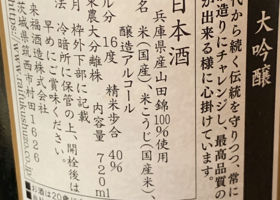 大吟醸
代から続く伝統を守りつつ、常に
造りにチャレンジし、最高品質の
が出来る様に心掛けています。
日本酒
兵庫県産山田錦100%使用
米(国産)、米こうじ(国産米)、
醸造アルコール
ル分 16度 精米歩合 40%
東農大分離株 内容量 720ml
月 枠外下部に記載
法 冷暗所に保管の上、開栓後は
早めにご賞味ください。
来福酒造株式会社
茨城県筑西市村田1626
www.raifukushuzo.co.jp
お酒は20歳